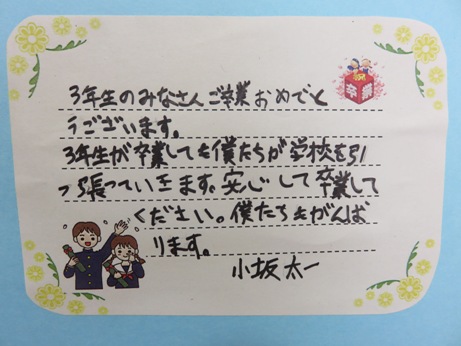 3年生のみなさんご卒業おめでと
うございます。
3年生が卒業しても僕たちが学校を引
っ張っていきます。安心して卒業して
ください。僕たちもがんば
ります。
小坂太一
卒業